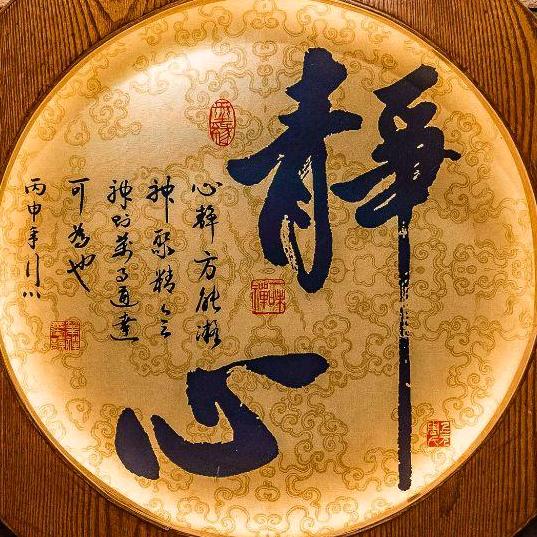 靜心
心靜方能凝
神聚精
神則萬事通達
可為也
丙申年